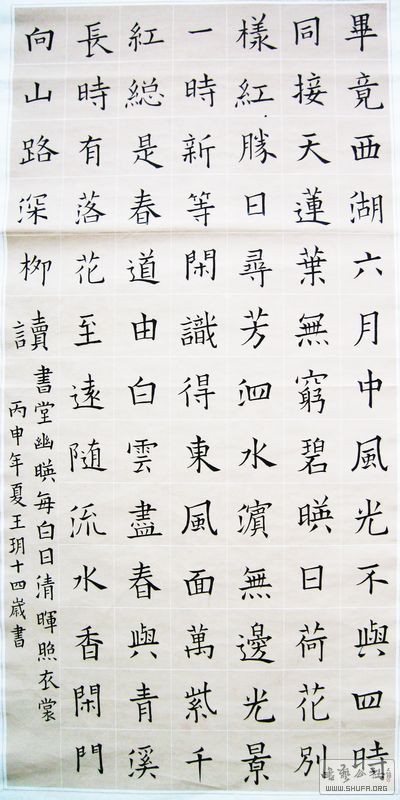 畢竟西湖六月中風光不與四時
同接天蓮葉無窮碧暎日荷花別
樣紅勝日尋芳泗水濱無邊光景
一時新等閑識得東風面萬紫千
紅総是春道由白雲盡春與青溪
長時有落花至遠隨流水香閑門
向山路深柳讀
書堂幽暎每白日清暉照衣裳
丙申年夏王玥十四歲書
WWW.SHUFA.ORG